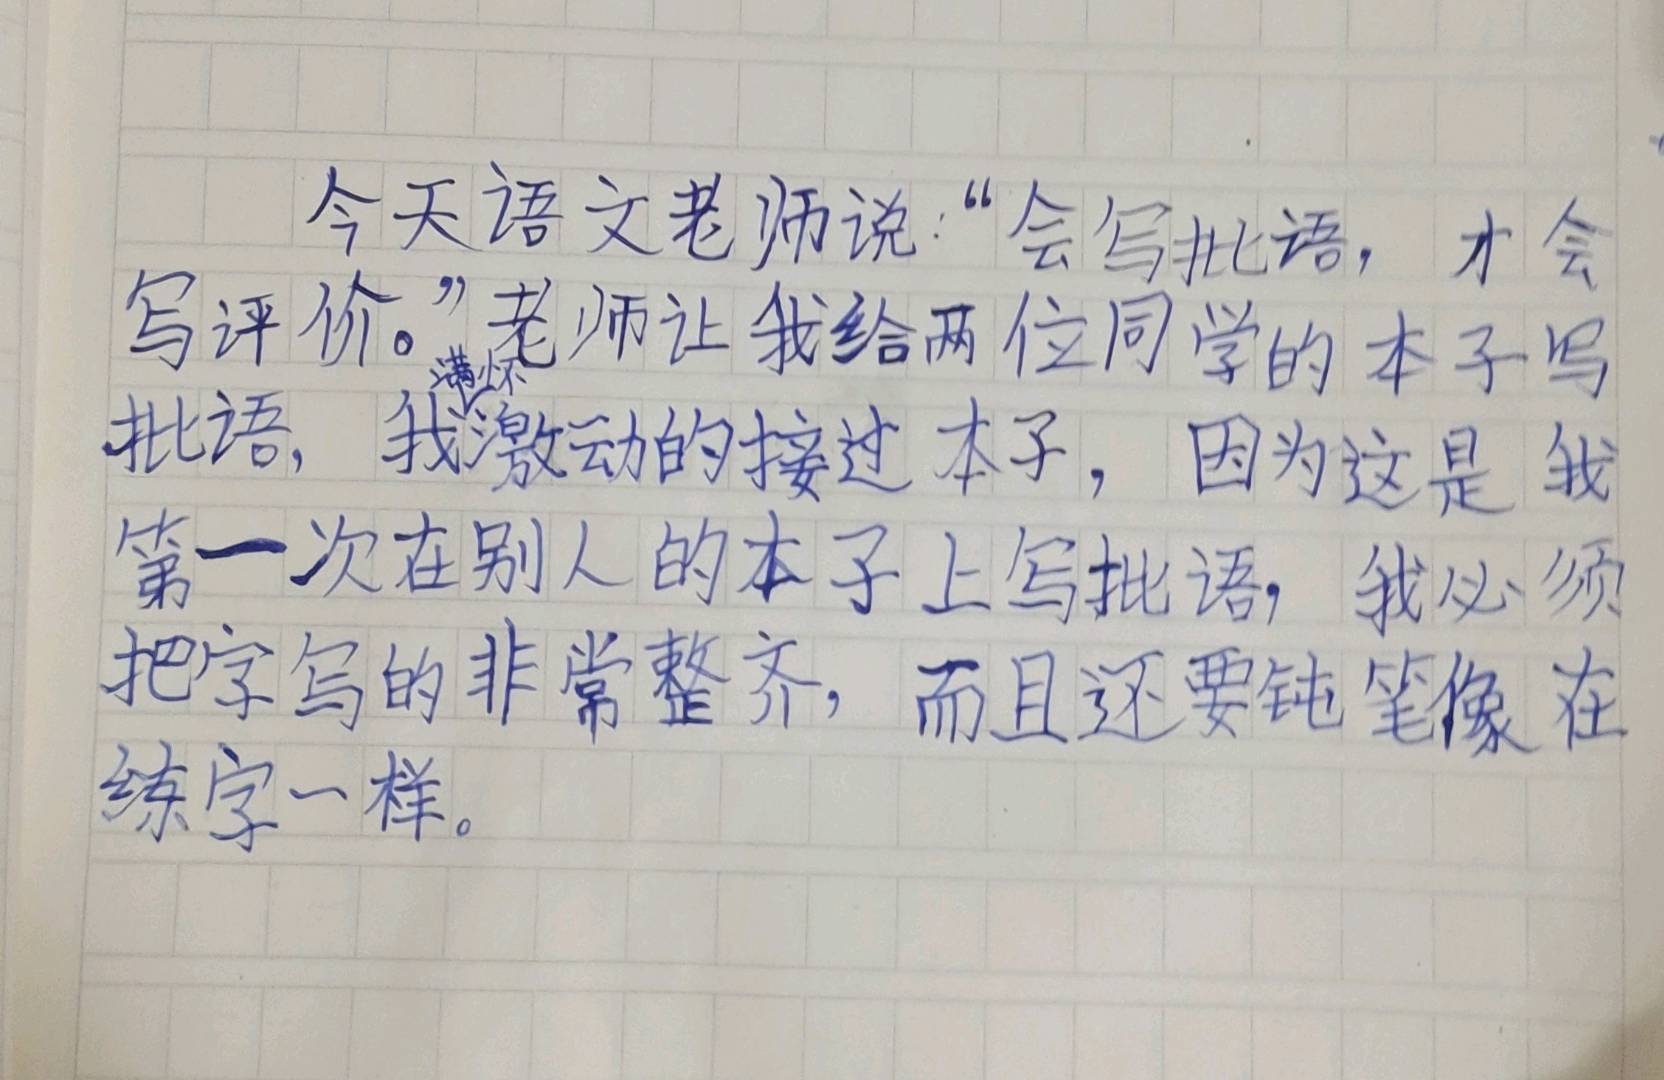 今天语文老师说:“会写批语,才会
写评价。”老师让我给两位同学的本子写
批语,我满怀激动的接过本子,因为这是我
第一次在别人的本子上写批语,我必须
把字写的非常整齐,而且还要钝笔像在
练字一样。